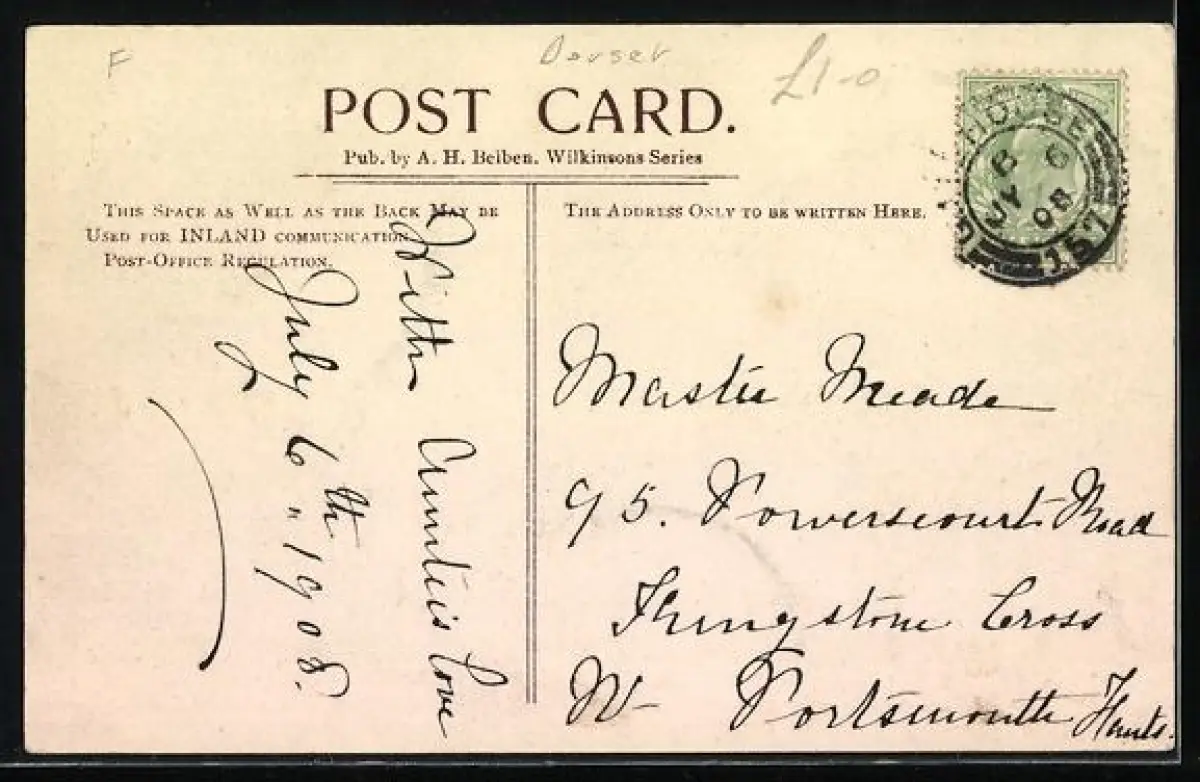 F
Dorset
£1-0
POST CARD.
Pub. by A. H. Beiben. Wilkinsons Series
THIS SPACE AS WELL AS THE BACK MAY BE
USED FOR INLAND COMMUNICATION.
POST-OFFICE REGULATION.
THE ADDRESS ONLY TO BE WRITTEN HERE.
B 6
JY 6
08
157
With Aunties Love
July 6th 1908.
Master Meade
95. Powerscourt Road
Kingstone Cross
Portsmouth Hants.